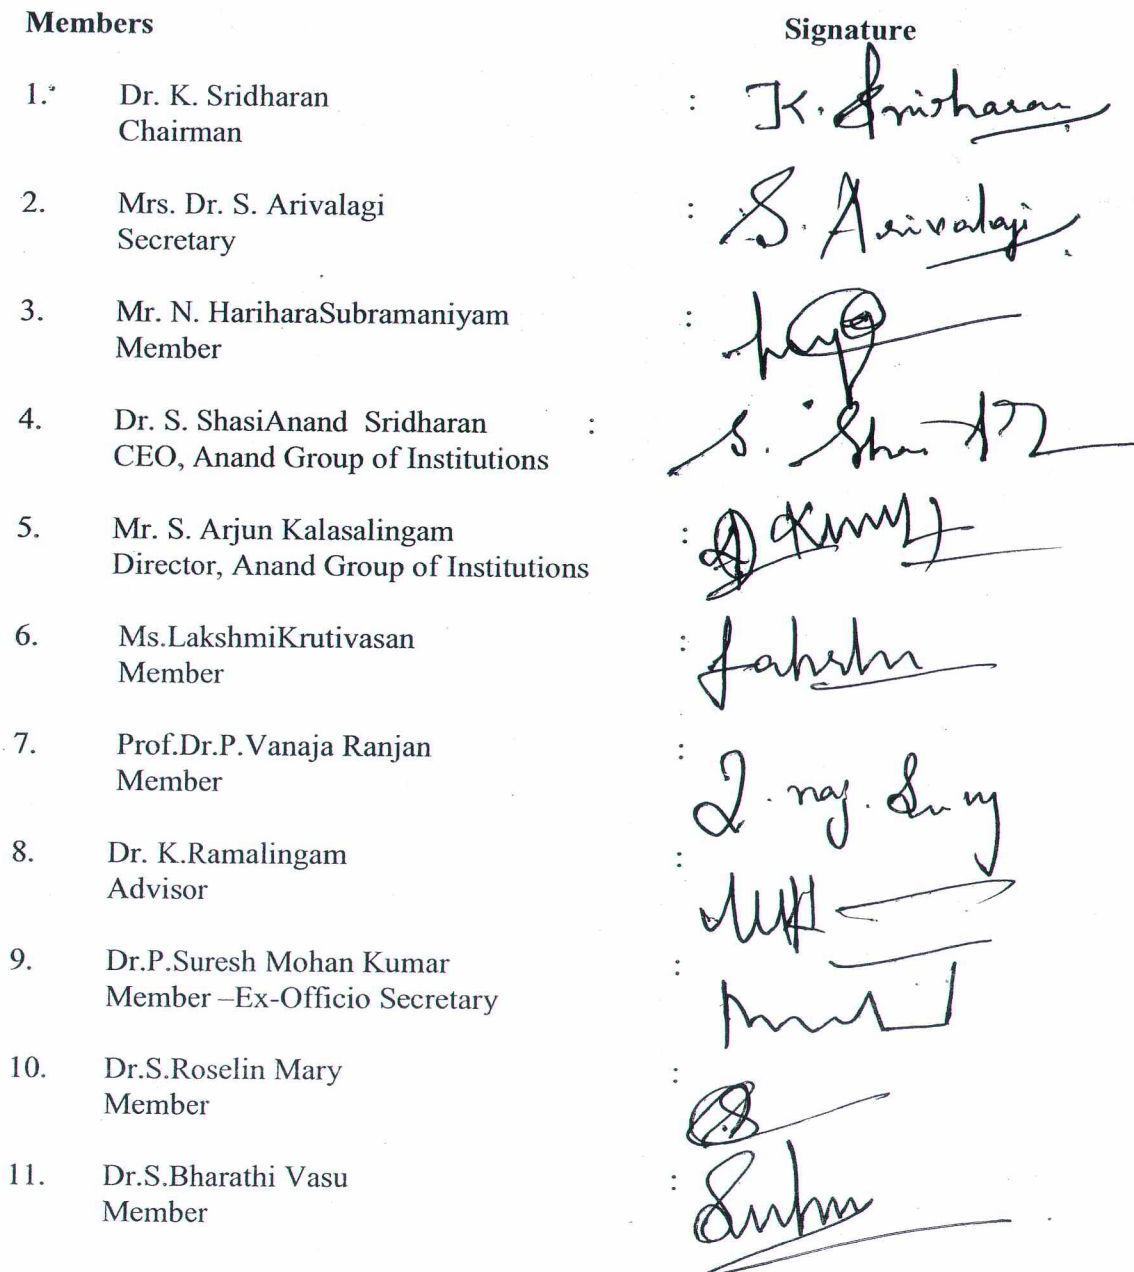 Members Signature
1. Dr. K. Sridharan : K. Sridharan
Chairman
2. Mrs. Dr. S. Arivalagi : S. Arivalagi
Secretary
3. Mr. N. HariharaSubramaniyam :
Member
4. Dr. S. ShasiAnand Sridharan : S.
CEO, Anand Group of Institutions
5. Mr. S. Arjun Kalasalingam :
Director, Anand Group of Institutions
6. Ms.LakshmiKrutivasan :
Member
7. Prof.Dr.P.Vanaja Ranjan :
Member
8. Dr. K.Ramalingam :
Advisor
9. Dr.P.Suresh Mohan Kumar :
Member –Ex-Officio Secretary
10. Dr.S.Roselin Mary :
Member
11. Dr.S.Bharathi Vasu :
Member